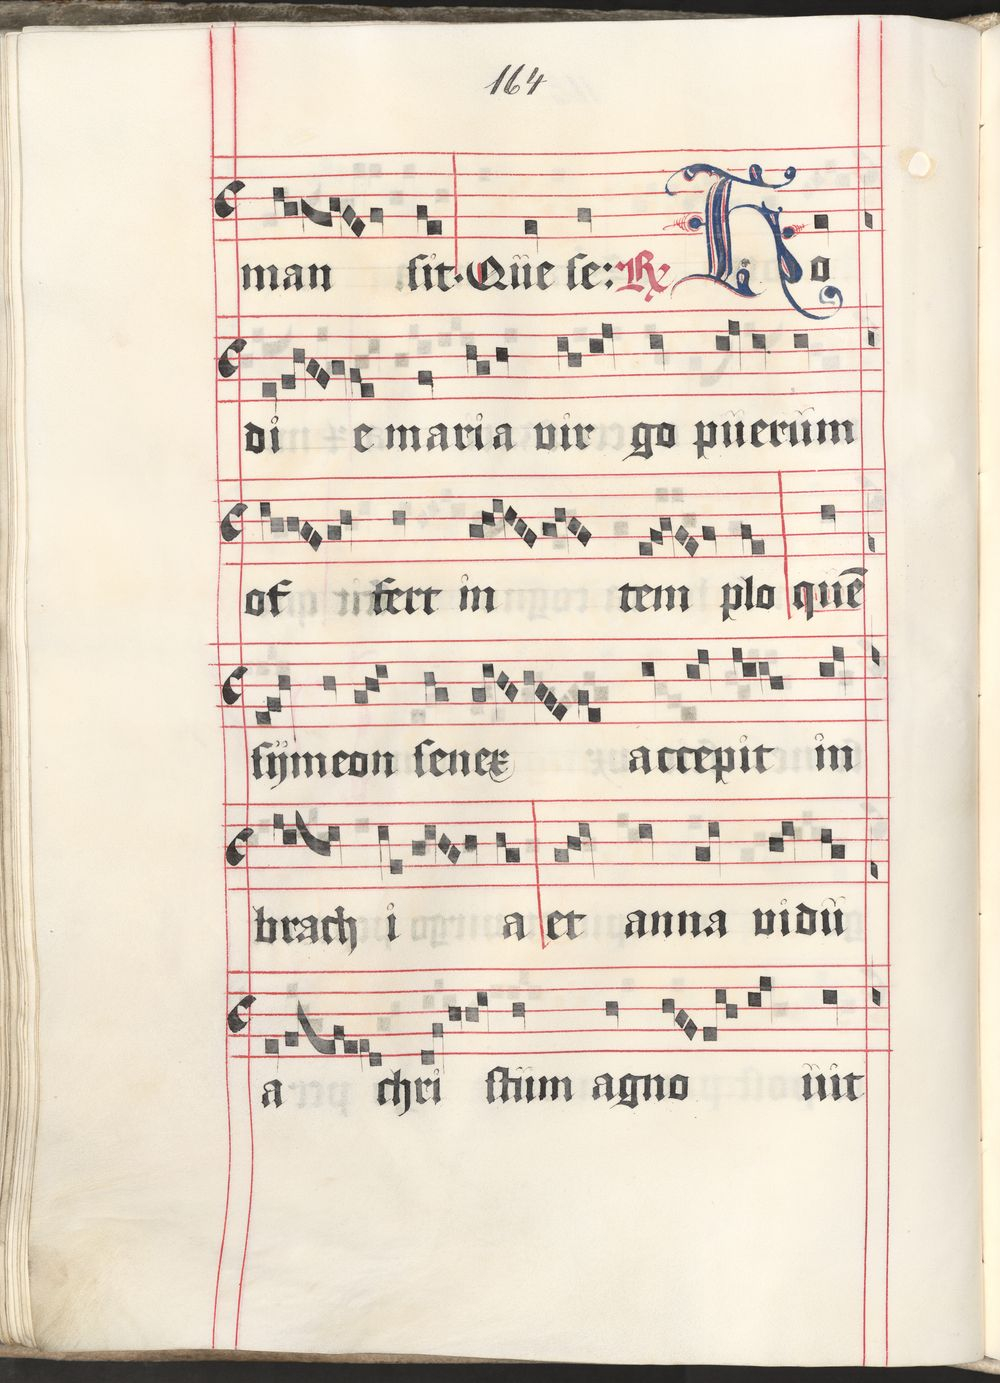 164
man sit· Que se: ℟ Ho
di e maria vir go puerum
of fert in tem plo quē
sijmeon senex accepit in
brach i a et anna vidu
a chri stum agno uit